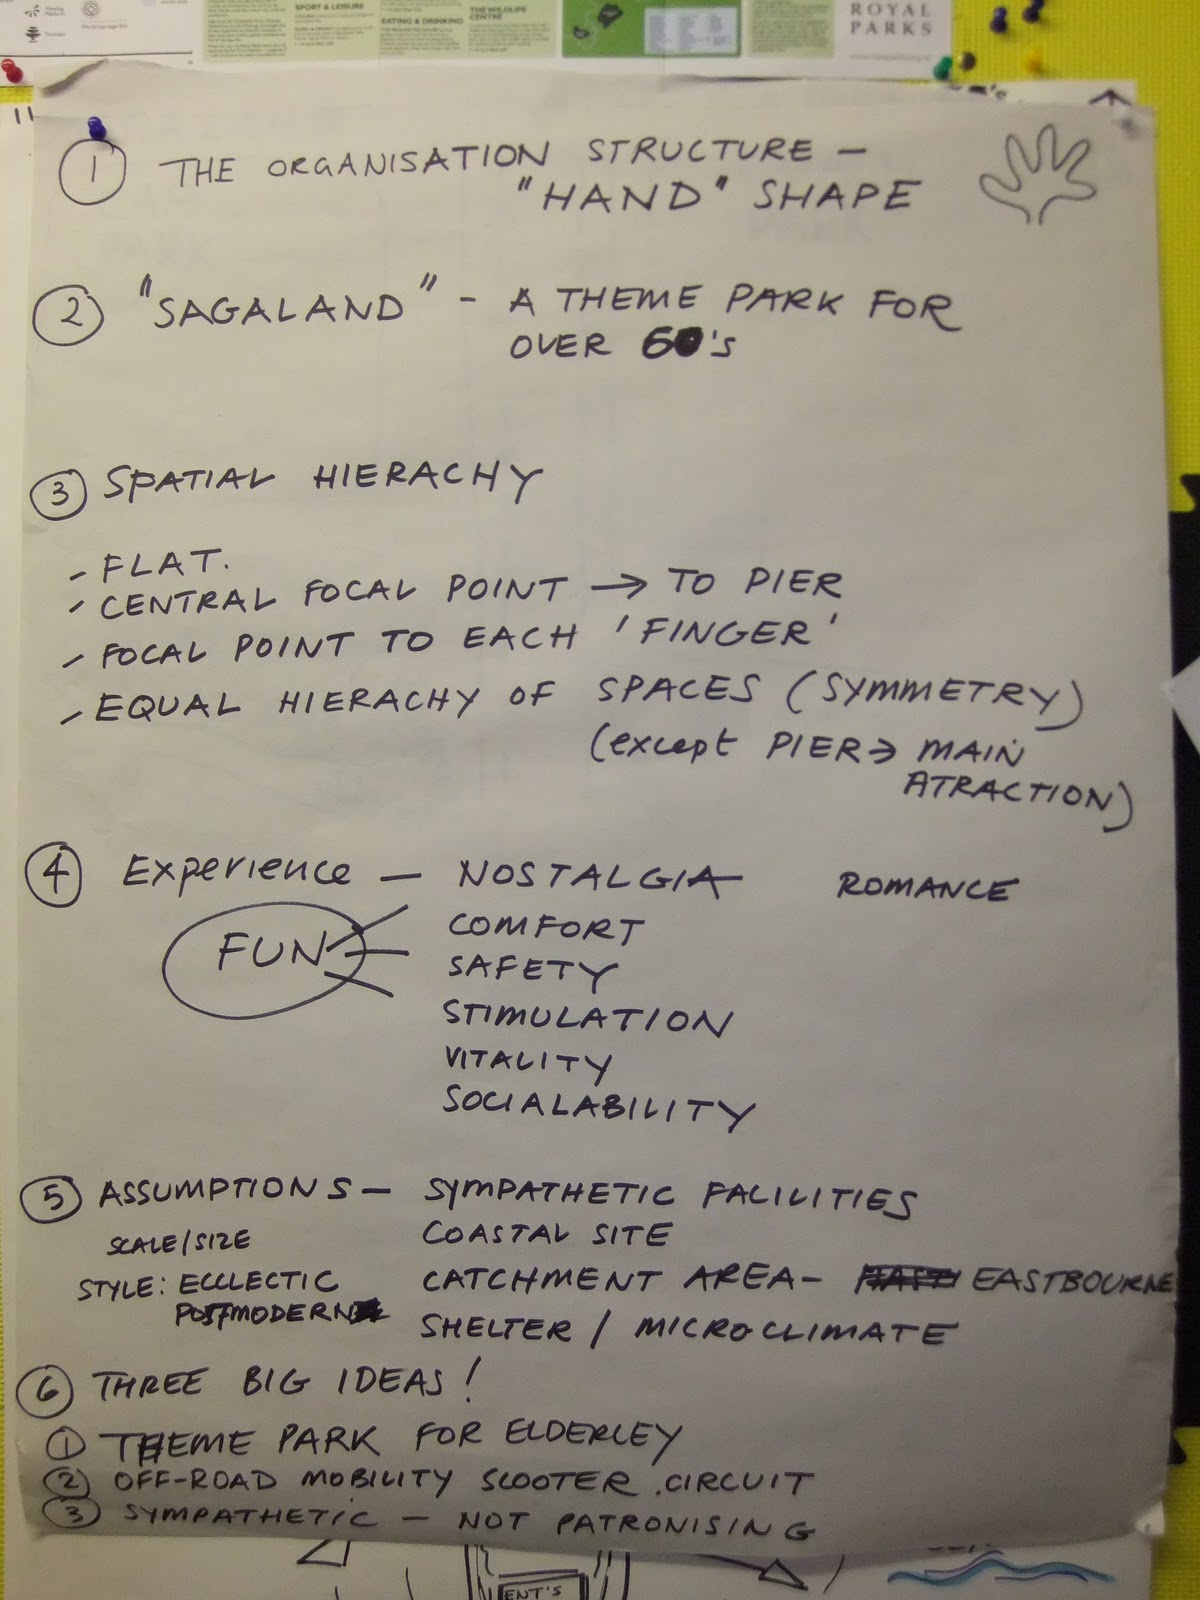 SPORT & LEISURE
EATING & DRINKING
THE WILDLIFE
CENTRE
ROYAL
PARKS
1 THE ORGANISATION STRUCTURE –
"HAND" SHAPE
2 "SAGALAND" - A THEME PARK FOR
OVER 60's
3 SPATIAL HIERACHY
- FLAT.
- CENTRAL FOCAL POINT → TO PIER
- FOCAL POINT TO EACH 'FINGER'
- EQUAL HIERACHY OF SPACES (SYMMETRY)
(except PIER → MAIN
ATRACTION)
4 Experience – NOSTALGIA ROMANCE
FUN COMFORT
SAFETY
STIMULATION
VITALITY
SOCIALABILITY
5 ASSUMPTIONS – SYMPATHETIC FACILILITIES
SCALE/SIZE COASTAL SITE
STYLE: ECCLECTIC CATCHMENT AREA – EASTBOURNE
POSTMODERN SHELTER / MICROCLIMATE
6 THREE BIG IDEAS!
1 THEME PARK FOR ELDERLEY
2 OFF-ROAD MOBILITY SCOOTER .CIRCUIT
3 SYMPATHETIC – NOT PATRONISING
ENT'S